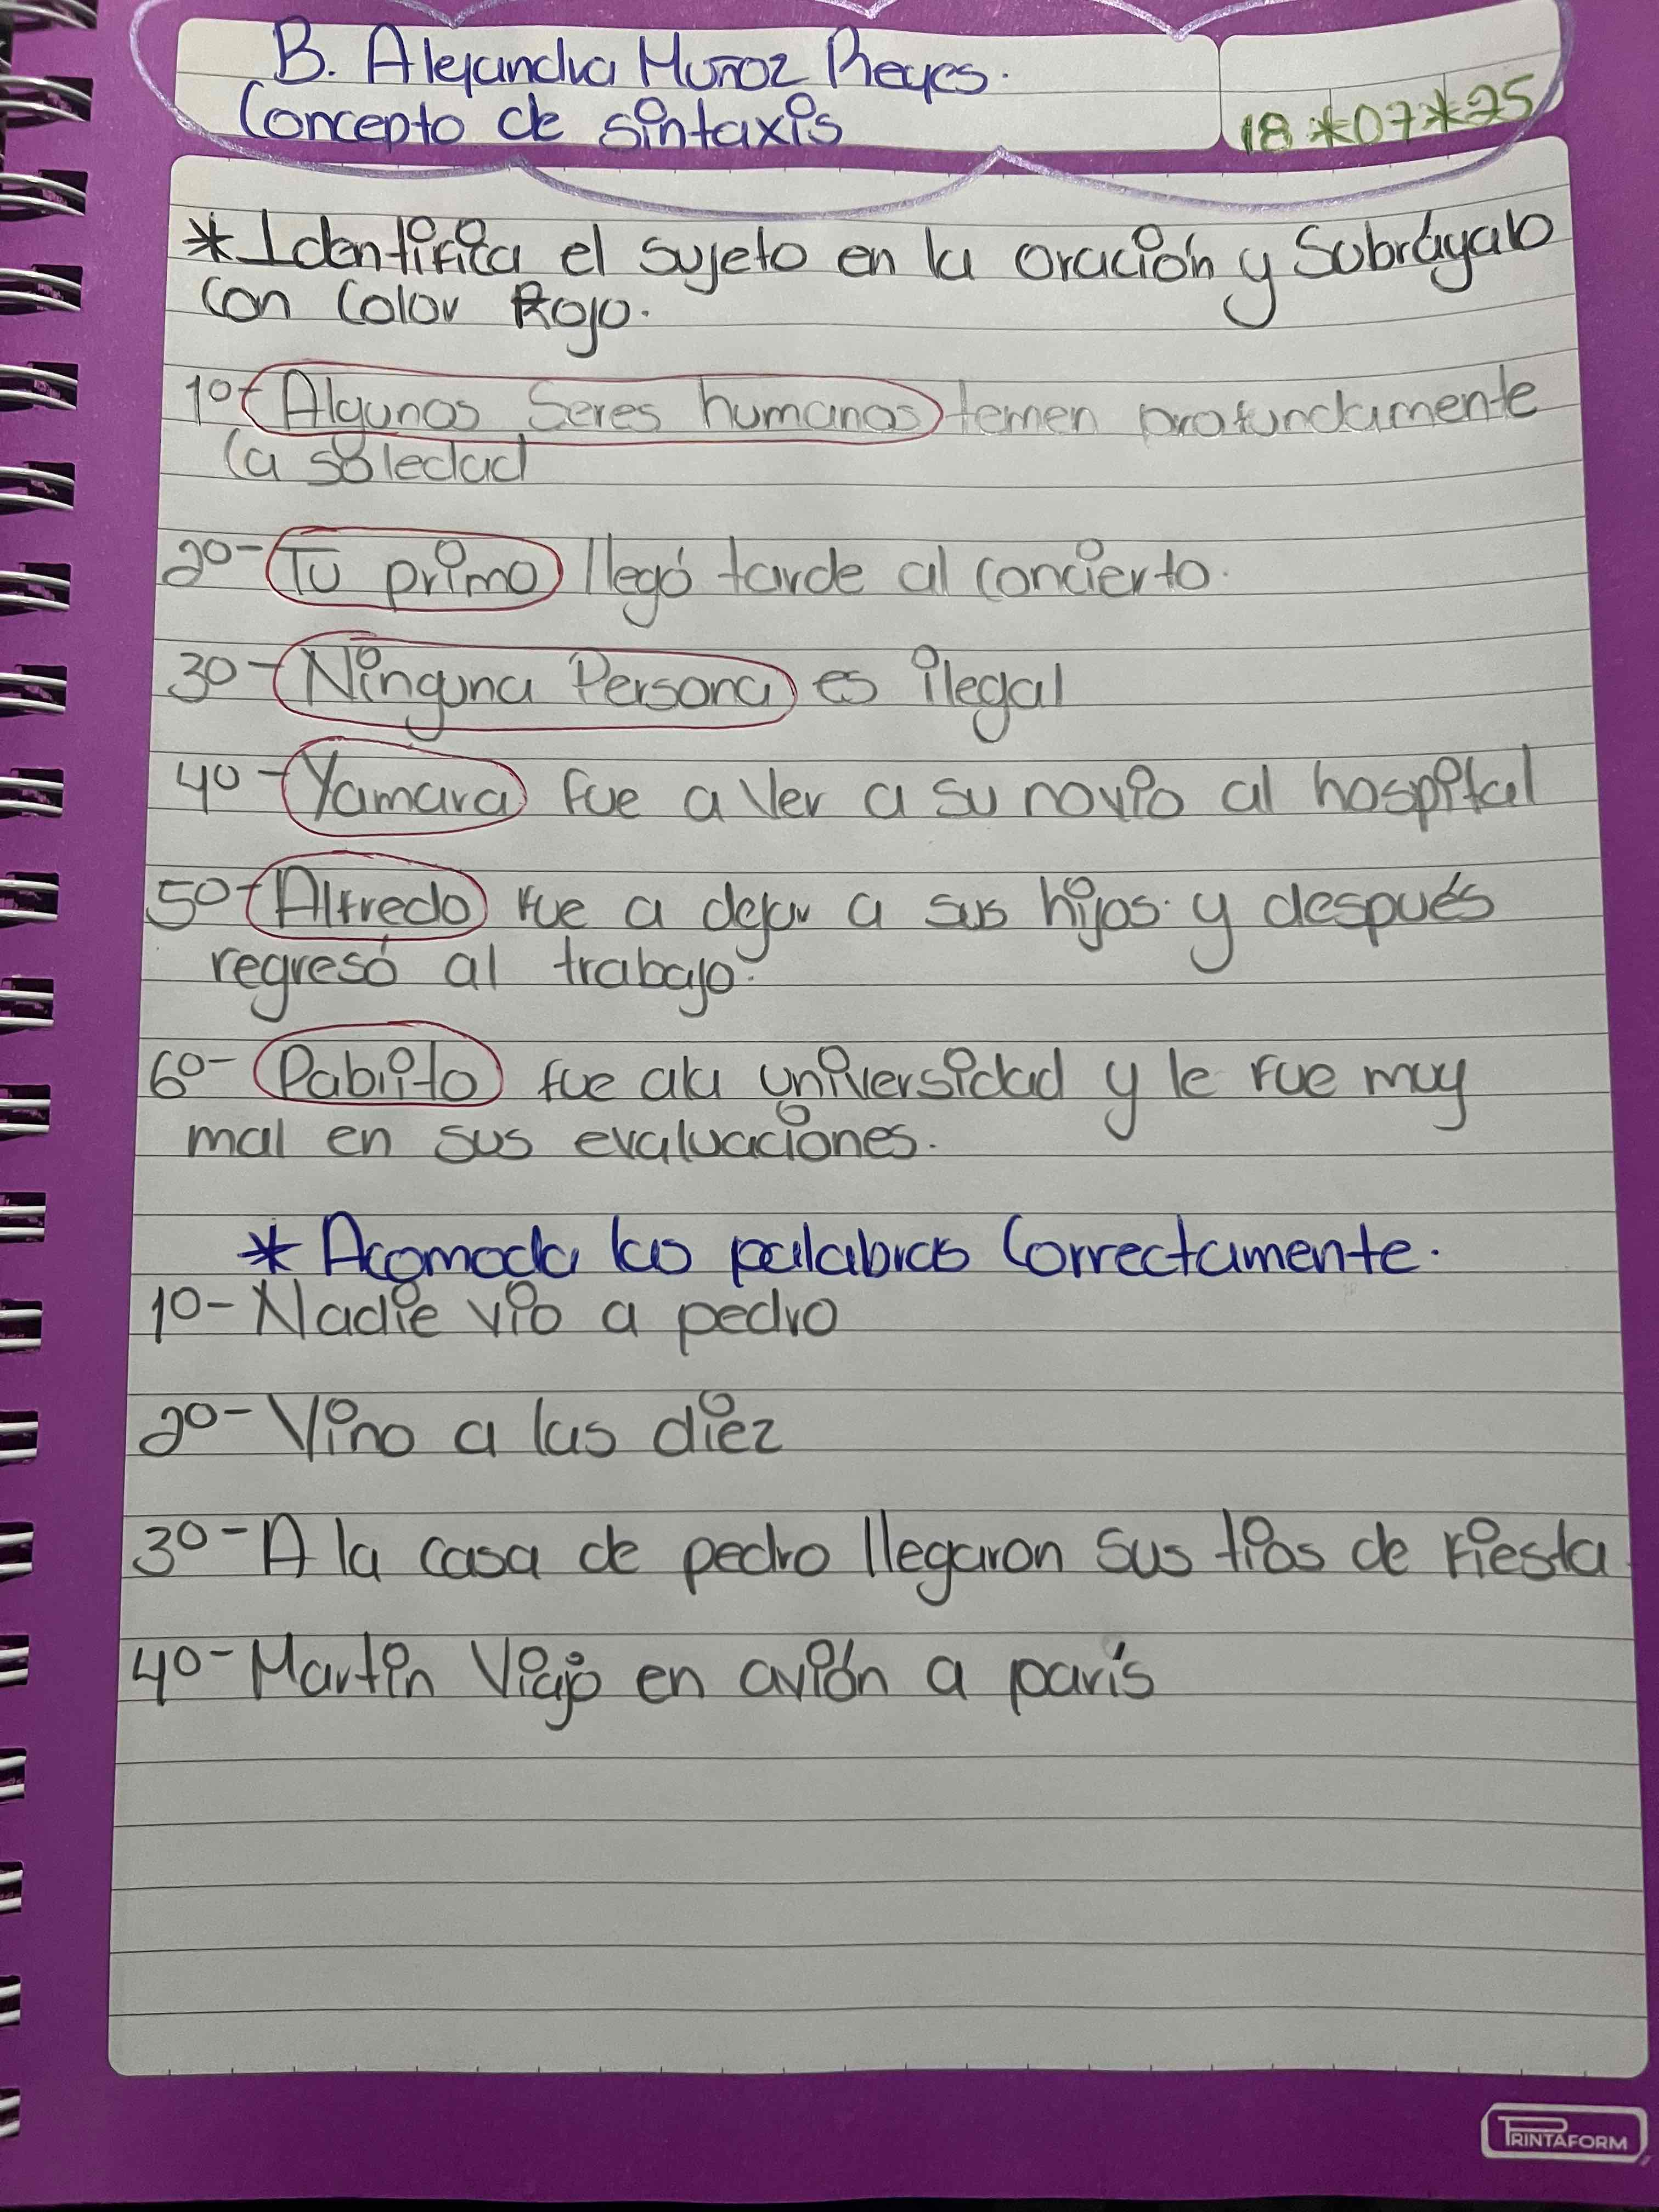 B. Alejandra Muñoz Reyes.
Concepto de sintaxis
18*07*25
*Identifica el sujeto en la oración y Subráyalo
con Color Rojo.
1º- Algunos Seres humanos temen profundamente
la soledad
2º- Tu primo llegó tarde al concierto.
3º- Ninguna Persona es ilegal
4º- Yamara fue a ver a su novio al hospital
5º- Alfredo fue a dejar a sus hijos y después
regresó al trabajo.
6º- Pabiito fue ala universidad y le fue muy
mal en sus evaluaciones.
* Acomoda las palabras Correctamente.
1º- Nadie vio a pedro
2º- Vino a las diez
3º- A la casa de pedro llegaron sus tios de fiesta
4º- Martin Viajo en avión a parís
PRINTAFORM